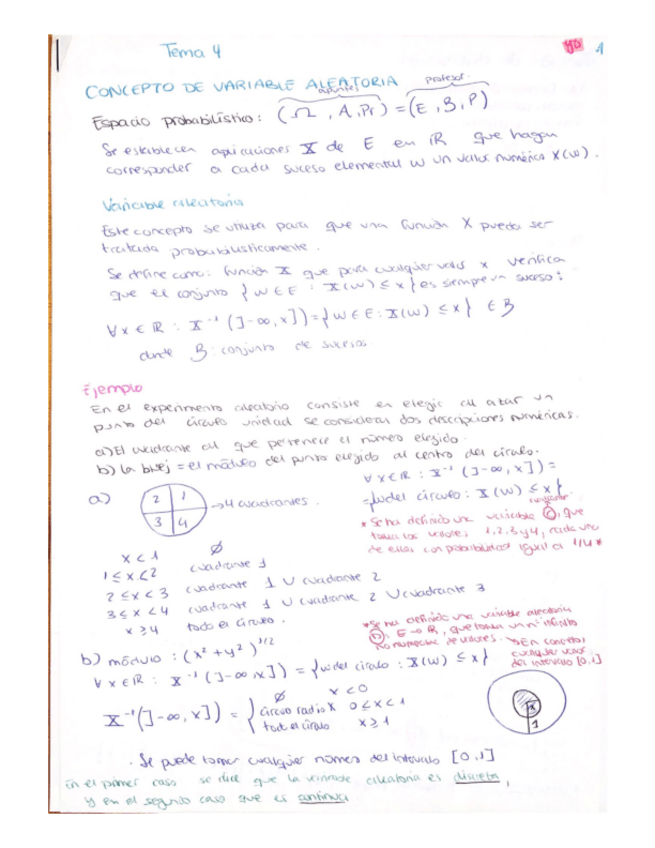 Tema 4
1
CONCEPTO DE VARIABLE ALEATORIA
apuntes profesor
Espacio probabilístico: (Ω, A, Pr) = (E, B, P)
Se establecen aplicaciones X de E en ℝ que hagan
corresponder a cada suceso elemental w un valor numérico X(w).
Variable aleatoria
Este concepto se utiliza para que una función X pueda ser
tratada probabilísticamente.
Se define como: función X que para cualquier valor x verifica
que el conjunto {w∈E : X(w) ≤ x} es siempre un suceso:
∀x∈ℝ : X⁻¹(]-∞,x]) = {w∈E : X(w) ≤ x} ∈ B
donde B: conjunto de sucesos
Ejemplo
En el experimento aleatorio consiste en elegir al azar un
punto del círculo unidad se consideran dos descripciones numéricas.
a) El cuadrante al que pertenece el número elegido.
b) la = el módulo del punto elegido al centro del círculo.
a)
2 1
3 4
→ 4 cuadrantes.
∀x∈ℝ : X⁻¹(]-∞,x]) =
= {w del círculo : X(w) ≤ x}
*Se ha definido una variable C, que
toma los valores 1,2,3 y 4, cada uno
de ellos con probabilidad igual a 1/4*
x < 1 ∅
1 ≤ x < 2 cuadrante 1
2 ≤ x < 3 cuadrante 1 ∪ cuadrante 2
3 ≤ x < 4 cuadrante 1 ∪ cuadrante 2 ∪ cuadrante 3
x ≥ 4 todo el círculo.
*Se ha definido una variable aleatoria
D, E → ℝ, que toma un nº infinito
no numerable de valores. *En concreto,
cualquier valor
del intervalo [0,1]
b) módulo : (x² + y²)^1/2
∀x∈ℝ : X⁻¹(]-∞,x]) = {w del círculo : X(w) ≤ x}
X⁻¹(]-∞,x]) = {
∅ x < 0
círculo radio x 0 ≤ x < 1
todo el círculo x ≥ 1
x
1
· Se puede tomar cualquier número del intervalo [0,1]
En el primer caso se dice que la variable aleatoria es discreta,
y en el segundo caso que es continua